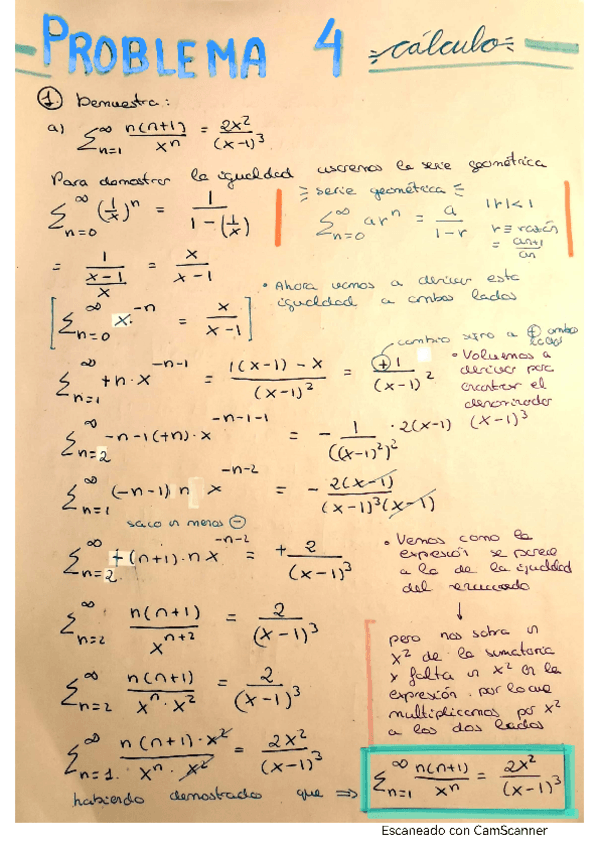 PROBLEMA 4 cálculo
① Demuestra:
a) ∑_{n=1}^{∞} n(n+1)/x^n = 2x²/(x-1)³
Para demostrar la igualdad usaremos la serie geométrica
∑_{n=0}^{∞} (1/x)^n = 1/(1-(1/x))
serie geométrica |r|<1
∑_{n=0}^{∞} ar^n = a/(1-r) r≡razón
= an+1/an
= 1/((x-1)/x) = x/(x-1)
• Ahora vamos a derivar esta
igualdad a ambos lados
[∑_{n=0}^{∞} x^{-n} = x/(x-1)]
cambio signo a ⊕ ambos
lados
∑_{n=1}^{∞} +n·x^{-n-1} = (1(x-1)-x)/(x-1)² = ⊕1/(x-1)²
• Volvemos a
derivar para
encontrar el
denominador
(x-1)³
∑_{n=2}^{∞} -n-1(+n)·x^{-n-1-1} = - 1/((x-1)²)² · 2(x-1)
∑_{n=1}^{∞} (-n-1) n x^{-n-2} = - 2(x-1)/((x-1)³(x-1))
saco un menos ⊖
∑_{n=2}^{∞} +(n+1)·nx^{-n-2} = + 2/(x-1)³
• Vemos como la
expresión se parece
a la de la igualdad
del enunciado
↓
∑_{n=2}^{∞} n(n+1)/x^{n+2} = 2/(x-1)³
∑_{n=2}^{∞} n(n+1)/(x^n·x²) = 2/(x-1)³
pero nos sobra un
x² de la sumatoria
y falta un x² en la
expresión. por lo que
multiplicamos por x²
a los dos lados
∑_{n=1}^{∞} n(n+1)·x²/(x^n·x²) = 2x²/(x-1)³
habiendo demostrado que ⟹ ∑_{n=1}^{∞} n(n+1)/x^n = 2x²/(x-1)³
Escaneado con CamScanner